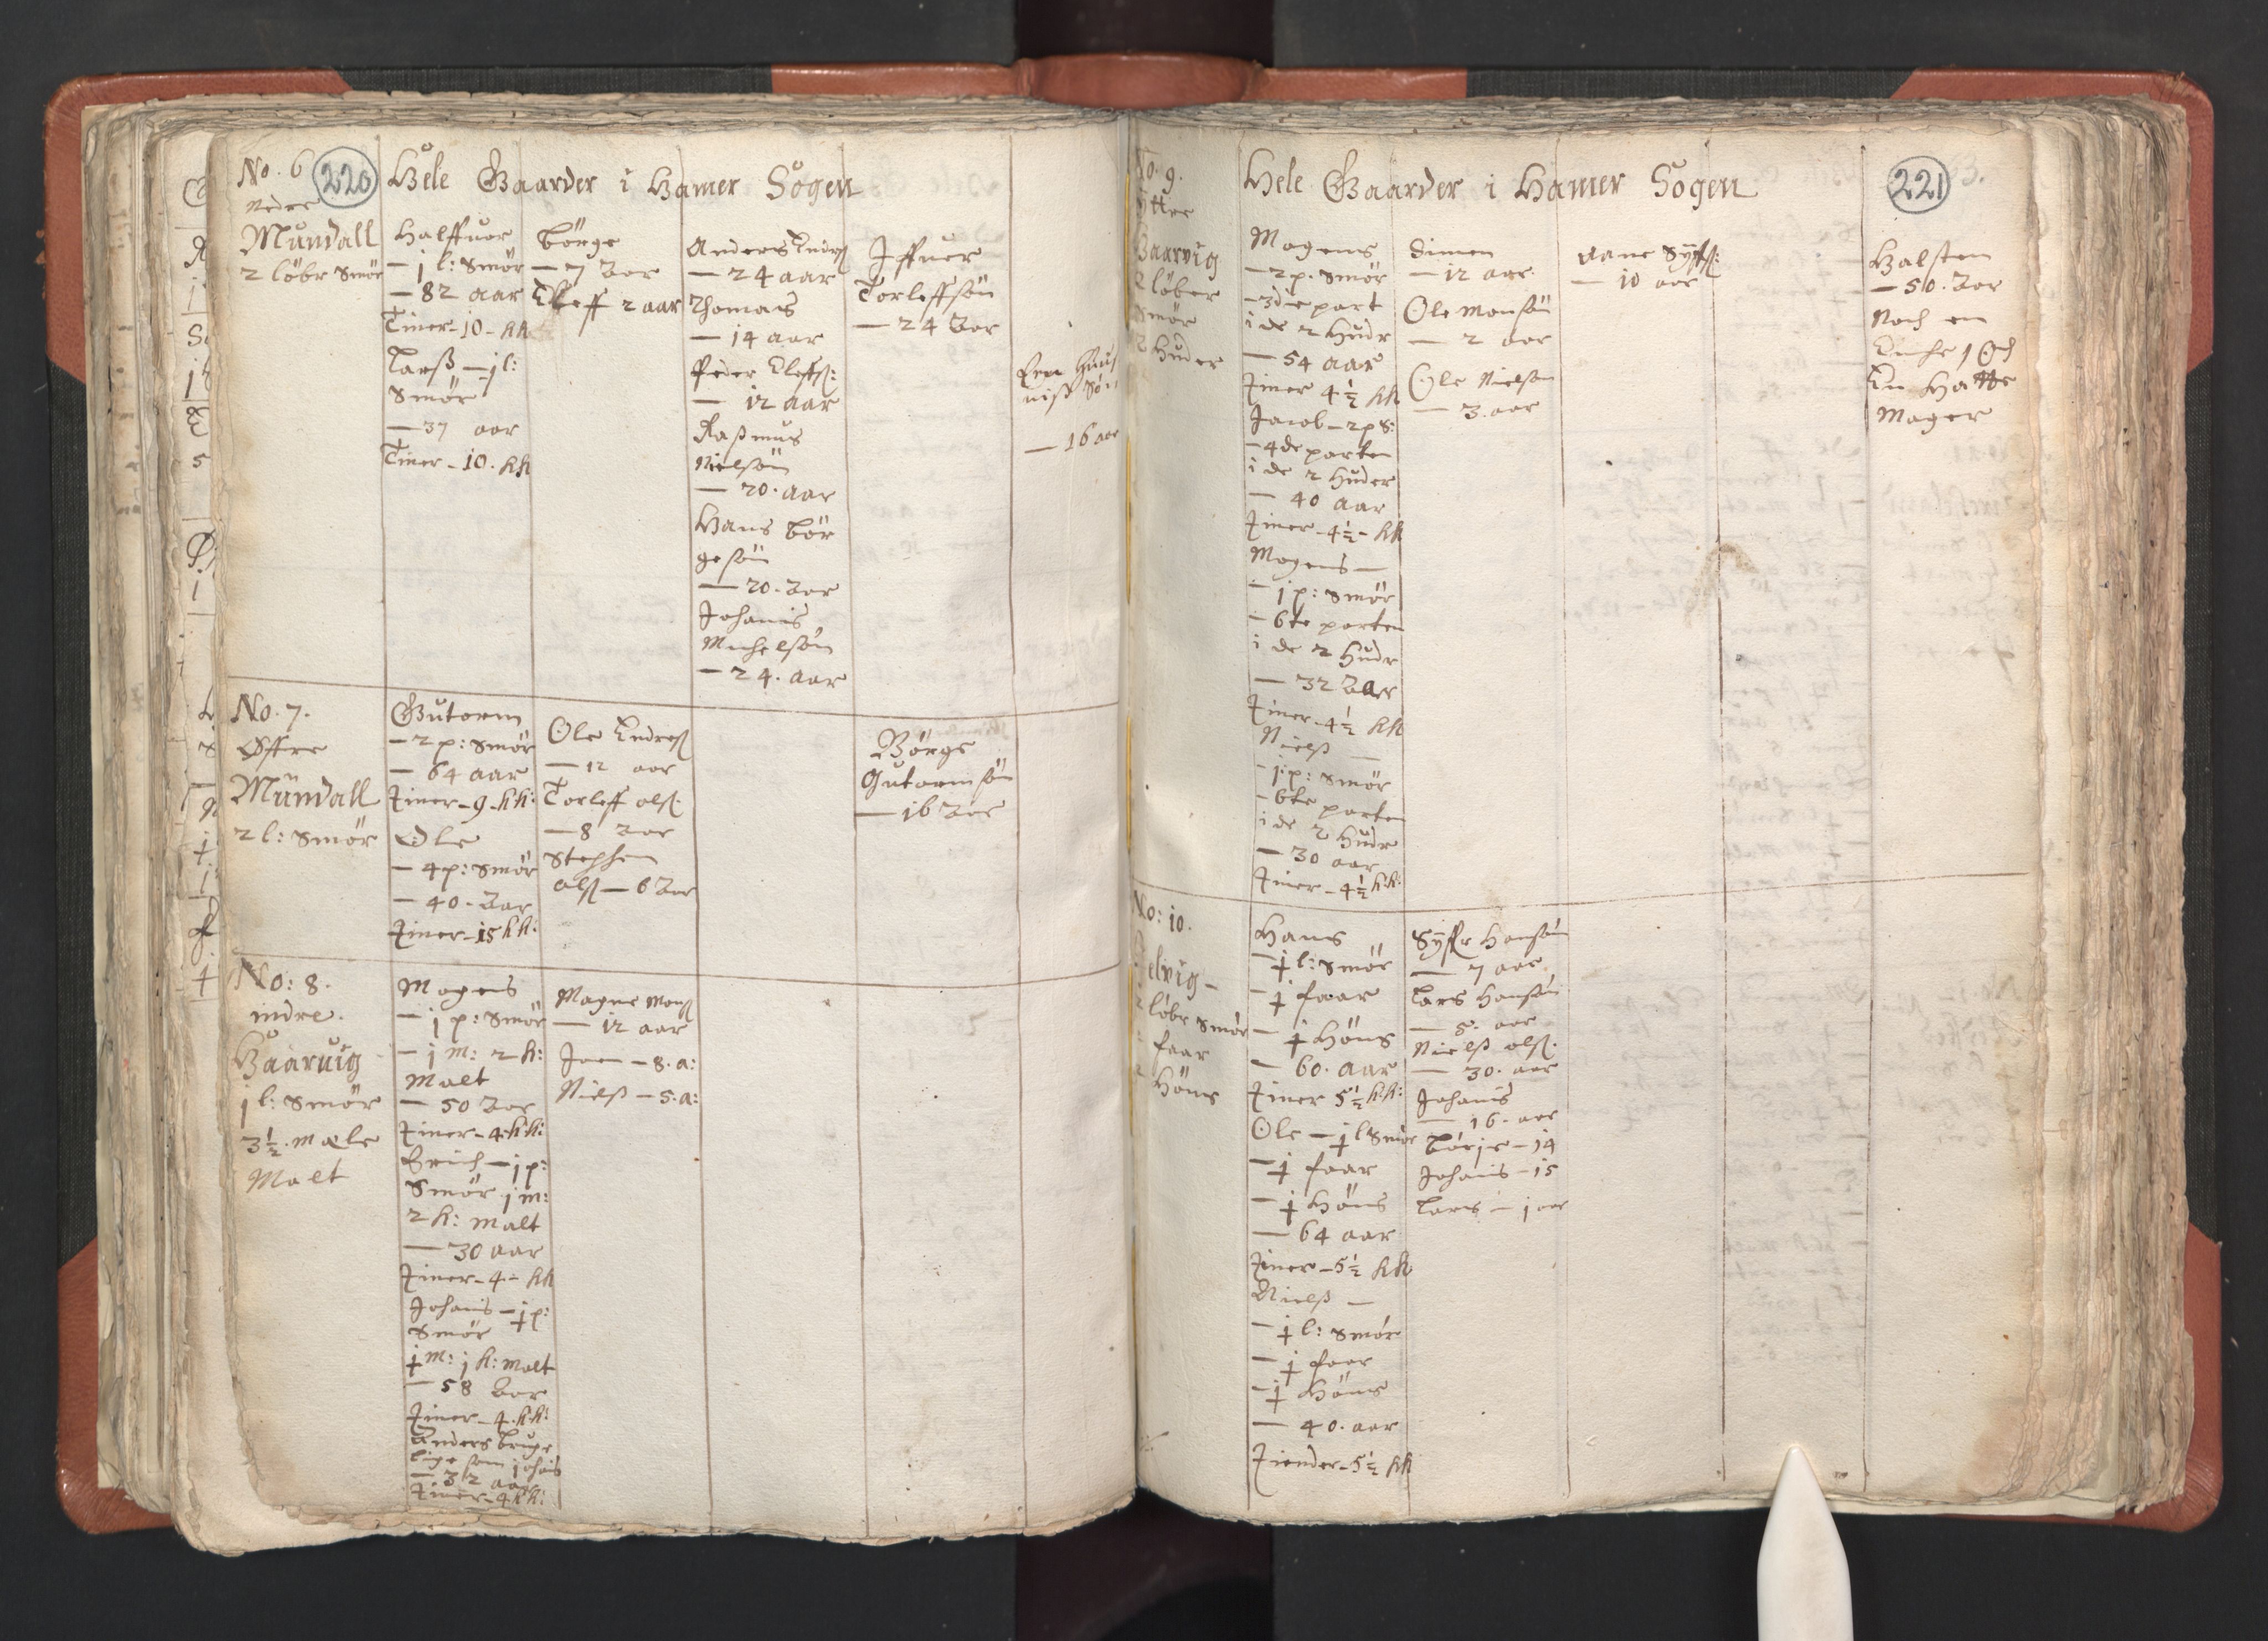 No. 6
220
Hele Gaarder i Hamer Sogen
Nedre
Mundall
2 löbr Smör
Halffuor
— j l: Smör
— 82 aar
Tiner - 10 - kk
Larß — j l:
Smör
— 37 aar
Tiner - 10 . kk
Börge
— 7 aar
Elleff 2 aar
Anders Endrß
— 24 aar
Thomas
— 14 aar
Peder Eleffß:
— 12 aar
Raßmus
Nielsön
— 20 . aar
Hans Bör
gesön
— 20 . aar
Johanis
Michelsön
— 24 . aar
Iffuer
Torleffsön
— 24 aar
Een
— 16 aar
No. 7.
Øffre
Mundall
2 l: Smör
Gutorm
— 2 p: Smör
— 64 aar
Tiner - 9 - kk:
Ole
— 4 p: Smör
— 40 . aar
Tiner - 15 kk:
Ole Endrß
— 12 aar
Torleff olß.
— 8 aar
Stephen
olß — 6 aar
Börge
Gutormsön
— 16 aar
No: 8.
indre.
Haarvig
j l: Smör
3½ . mæle
Malt
Mogens
— j p: Smör
— j m: 2 k:
Malt
— 50 aar
Tiner - 4 kk:
Erich — j p:
Smör j m:
2 k: malt
— 30 aar
Tiner - 4 - kk
Johanis — j p:
Smör
j m: j k: malt
— 58 aar
Tiner - 4 . kk:
Anders bruger
lige som johanis
— 32 aar
Tiner - 4 kk:
Magne Monß
— 12 aar
Joen — 8 . a:
Nielß — 5 . a:
No. 9.
Yttre
Haarvig
2 löber
Smör
2 Huder
Hele Gaarder i Hamer Sogen
221
Mogens
— 2 p. Smör
— 3die part
i de 2 Hudr
— 54 aar
Tiner 4½ kk
Jacob — 2 p S:
— 4de parten
i de 2 Huder
— 40 aar
Tiner - 4½ - kk
Mogens —
— j p: Smör
— 6te parten
i de 2 Hudr
— 32 aar
Tiner - 4½ kk
Nielß —
— j p: Smör
— 6te parten
i de 2 Hudr
— 30 aar
Tiner - 4½ kk:
Simen
— 12 aar
Ole Monsön
— 2 aar
Ole Nielsön
— 3 . aar
— 10 aar
Halsten
— 50 . aar
Noch en
En Hatte
Mager
No: 10.
Helvig -
2 löbr Smör
faar
Höns
Hans
— j l: Smör
— j faar
— j Höns
— 60 . aar
Tiner 5½ kk:
Ole — j l Smör
— j faar
— j Höns
— 64 aar
Tiner - 5½ kk
Nielß —
— j l: Smör
— j faar
— j Höns
— 40 . aar
Tiender - 5½ kk
Syffr Hansön
— 7 aar
Lars Hansön
— 5 . aar
Nielß olß.
— 30 . aar
Johanis
— 16 . aar
Börje — 14
Johanis — 15
Lars — j aar